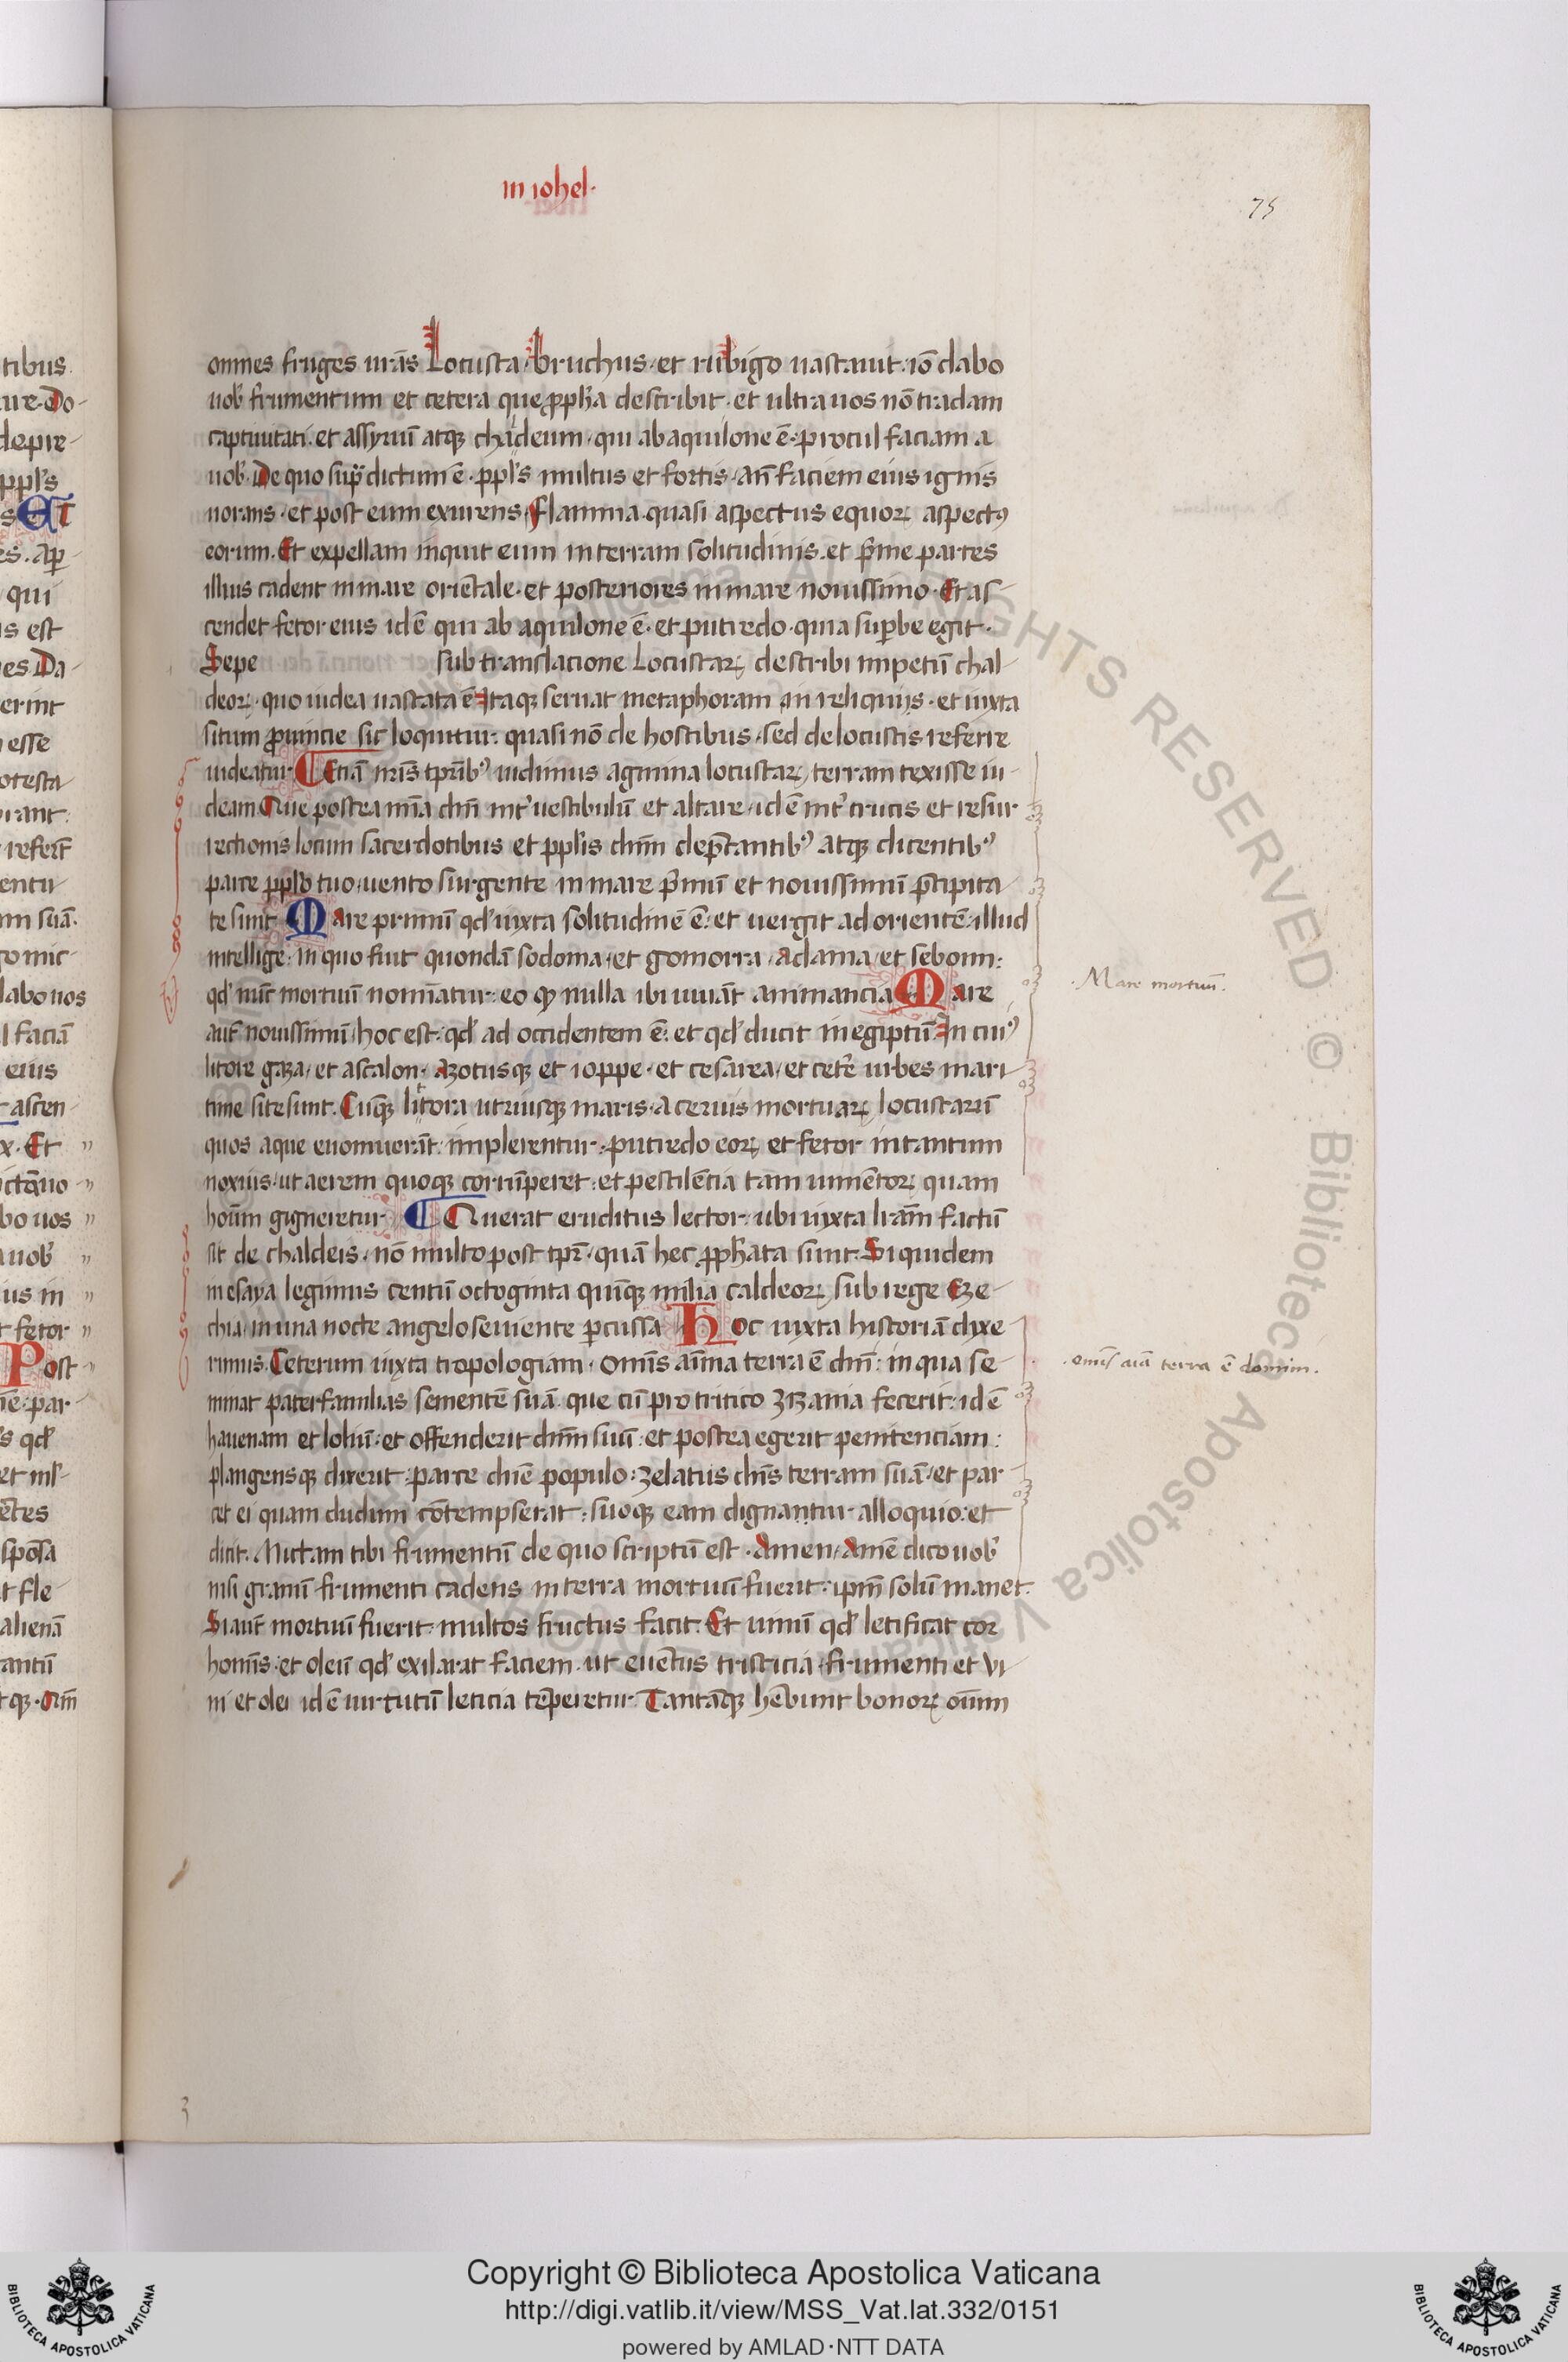 in iohel·
75
omnes fruges urās Locusta, bruchus, et rubigo uastauit· iō dabo
uob' frumentum et cetera que ꝓph̄a describit· et ultra uos nō tradam
captiuitati· et assyriū atqꝫ chaldeum· qui ab aquilone ē· procul faciam a
uob'· De quo sup̄ dictum ē· ppl's multus et fortis, an̄ faciem eius ignis
uorans· et post eum exurens flamma quasi aspectus equoꝝ aspectꝰ
eorum. Et expellam inquit eum in terram solitudinis· et p̄me partes
illius cadent in mare oriētale· et posteriores in mare nouissimo· Et as-
cendet fetor eius id ē qui ab aquilone ē· et putredo· quia suꝑbe egit·
Sepe sub translacione Locustaꝝ describi impetū chal-
deoꝝ· quo iudea uastata ē Itaqꝫ seruat metaphoram in reliquijs· et iuxta
situm ꝓuincie sic loquitur: quasi nō de hostibus, sed de locustis referre
uideatur ¶ Etiā nr̄is tꝑribꝰ uidimus agmina locustaꝝ terram texisse iu-
deam Que postea mīa dn̄i int' uestibulū et altare, id ē int' crucis et resur
rectionis locum sacerdotibus et ppl'is dn̄m dep̄cantibꝰ atqꝫ dicentibꝰ
parce ppl'o tuo, uento surgente in mare p̄mū et nouissimū p̄cipita-
te sunt Mare primū qd' iuxta solitudinē ē: et uergit ad orientē: illud
intellige: in quo fuit quondā sodoma, et gomorra, adama, et seboim:
qd' nūc mortuū nomīatur: eo qꝫ nulla ibi uiuāt animancia Mare
aut̄ nouissimū, hoc est: qd' ad occidentem ē: et qd' ducit in egiptū In cuiꝰ
litore gaza, et ascalon, azotusqꝫ et ioppe, et cesarea, et ceter̄e urbes mari-
time site sunt. Cūqꝫ litora utriusqꝫ maris, aceruis mortuaꝝ locustarū
quos aque euomuerāt: implerentur: putredo eoꝝ et fetor intantum
noxius, ut aerem quoqꝫ corrūperet: et pestilēcia tam iumētoꝝ quam
hoīum gigneretur ¶ Querat eruditus lector· ubi iuxta lr̄am factū
sit de chaldeis, nō multo post tꝑr̄, quā hec ꝓph̄ata sunt. Siquidem
in esaya legimus centū octoginta quīqꝫ milia caldeoꝝ sub rege Eze-
chia, in una nocte angelo seuiente ꝑcussa Hoc iuxta historiā dixe-
rimus. Ceterum iuxta tropologiam· omīs aīma terra ē dn̄i: in qua se-
minat paterfamilias sementē suā· que cū pro tritico zizania fecerit: id ē
hauenam et loliū: et offenderit dn̄m suū: et postea egerit penitenciam:
plangensqꝫ dixerit: parce dn̄e populo: zelatus dn̄s terram suā, et par-
cet ei quam dudum cōtempserat: suoqꝫ eam dignantur alloquio: et
dicit. Mictam tibi frumentū de quo scriptū est· Amen, Amē dico uob'
nisi granū frumenti cadens in terra mortuū fuerit: ip̄m solū manet·
Si aut̄ mortuū fuerit· multos fructus facit. Et uinū qd' letificat cor
homīs· et oleū qd' exilarat faciem· ut euētus tristicia· frumenti et vi-
ni et olei id ē uirtutū leticia tēꝑeretur· Tantāqꝫ hēbunt bonoꝝ oīum
· Mare mortuū·
· omīs aīa terra ē domini·
Copyright © Biblioteca Apostolica Vaticana
http://digi.vatlib.it/view/MSS_Vat.lat.332/0151
powered by AMLAD·NTT DATA
BIBLIOTECA APOSTOLICA VATICANA
BIBLIOTECA APOSTOLICA VATICANA